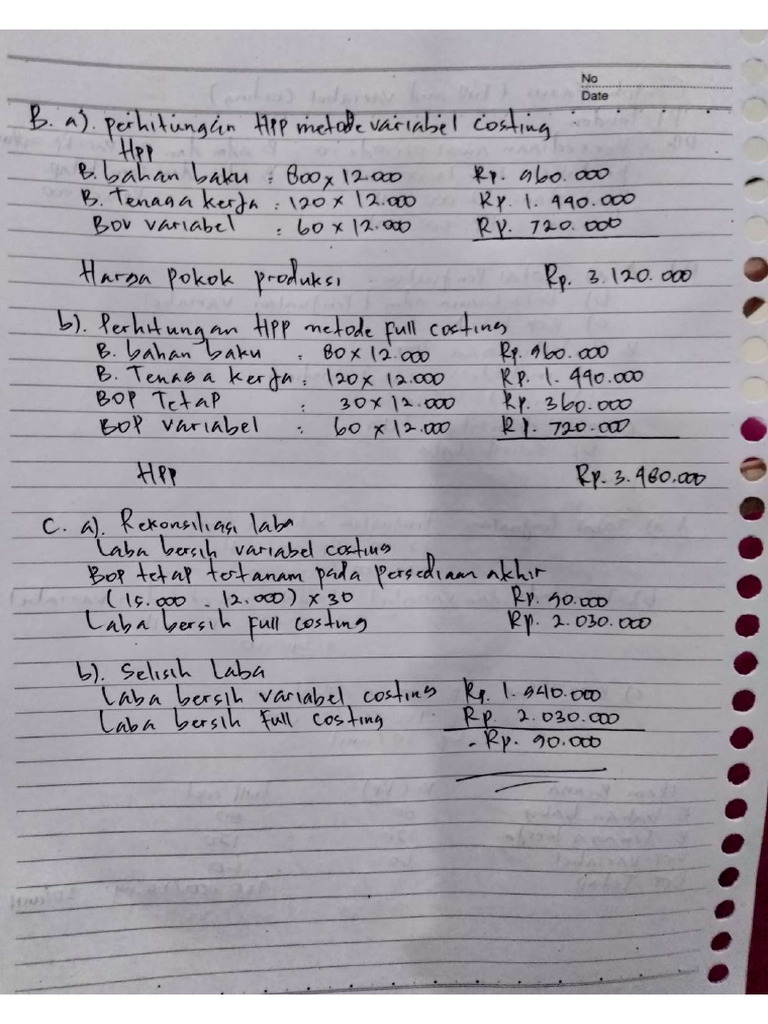 No
Date
B. a). perhitungan HPP metode variabel costing
HPP
B. bahan baku : 800 x 12.000 Rp. 960.000
B. Tenaga kerja : 120 x 12.000 Rp. 1.440.000
BOV variabel : 60 x 12.000 Rp. 720.000
Harga pokok produksi Rp. 3.120.000
b). Perhitungan HPP metode full costing
B. bahan baku : 80 x 12.000 Rp. 960.000
B. Tenaga kerja : 120 x 12.000 Rp. 1.440.000
BOP Tetap : 30 x 12.000 Rp. 360.000
BOP variabel : 60 x 12.000 Rp. 720.000
HPP Rp. 3.480.000
C. a). Rekonsiliasi laba
Laba bersih variabel costing
BOP tetap tertanam pada persediaan akhir
(15.000 - 12.000) x 30 Rp. 90.000
Laba bersih full costing Rp. 2.030.000
b). Selisih Laba
Laba bersih variabel costing Rp. 1.940.000
Laba bersih full costing Rp. 2.030.000
- Rp. 90.000